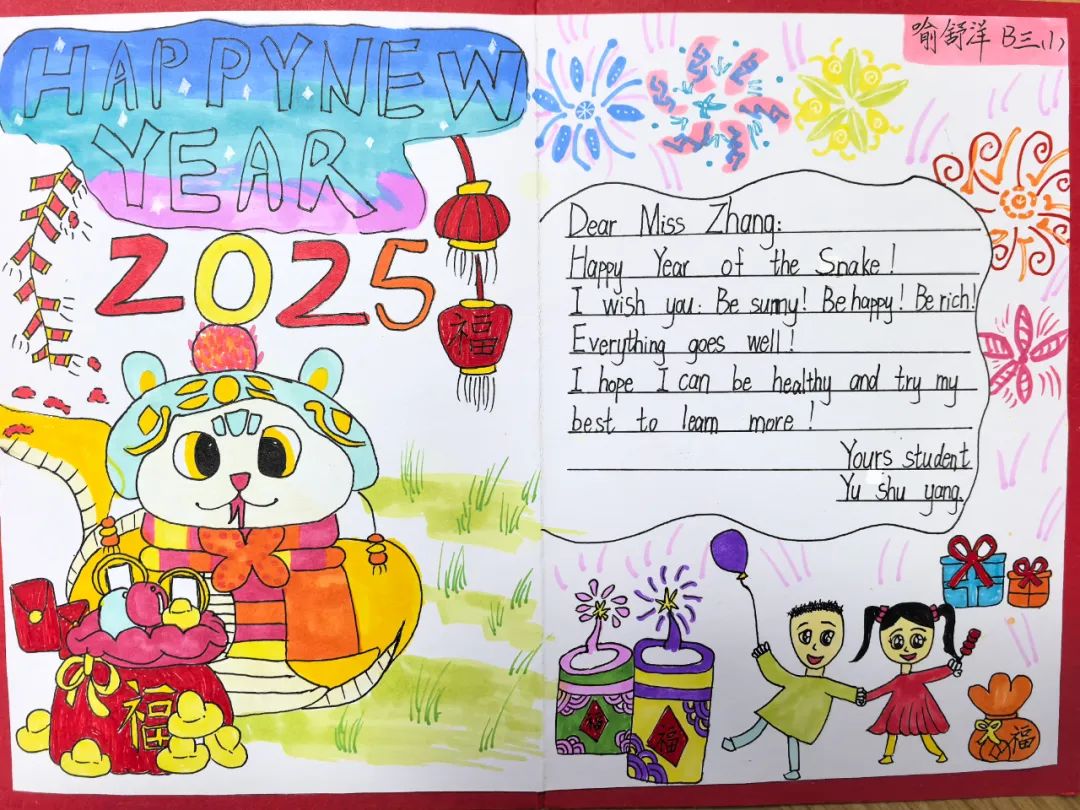 HAPPY NEW
YEAR
2025
福
福
喻舒洋 B三(1)
Dear Miss Zhang:
Happy Year of the Snake!
I wish you: Be sunny! Be happy! Be rich!
Everything goes well!
I hope I can be healthy and try my
best to learn more!
Yours student
Yu shu yang.
福
福
福